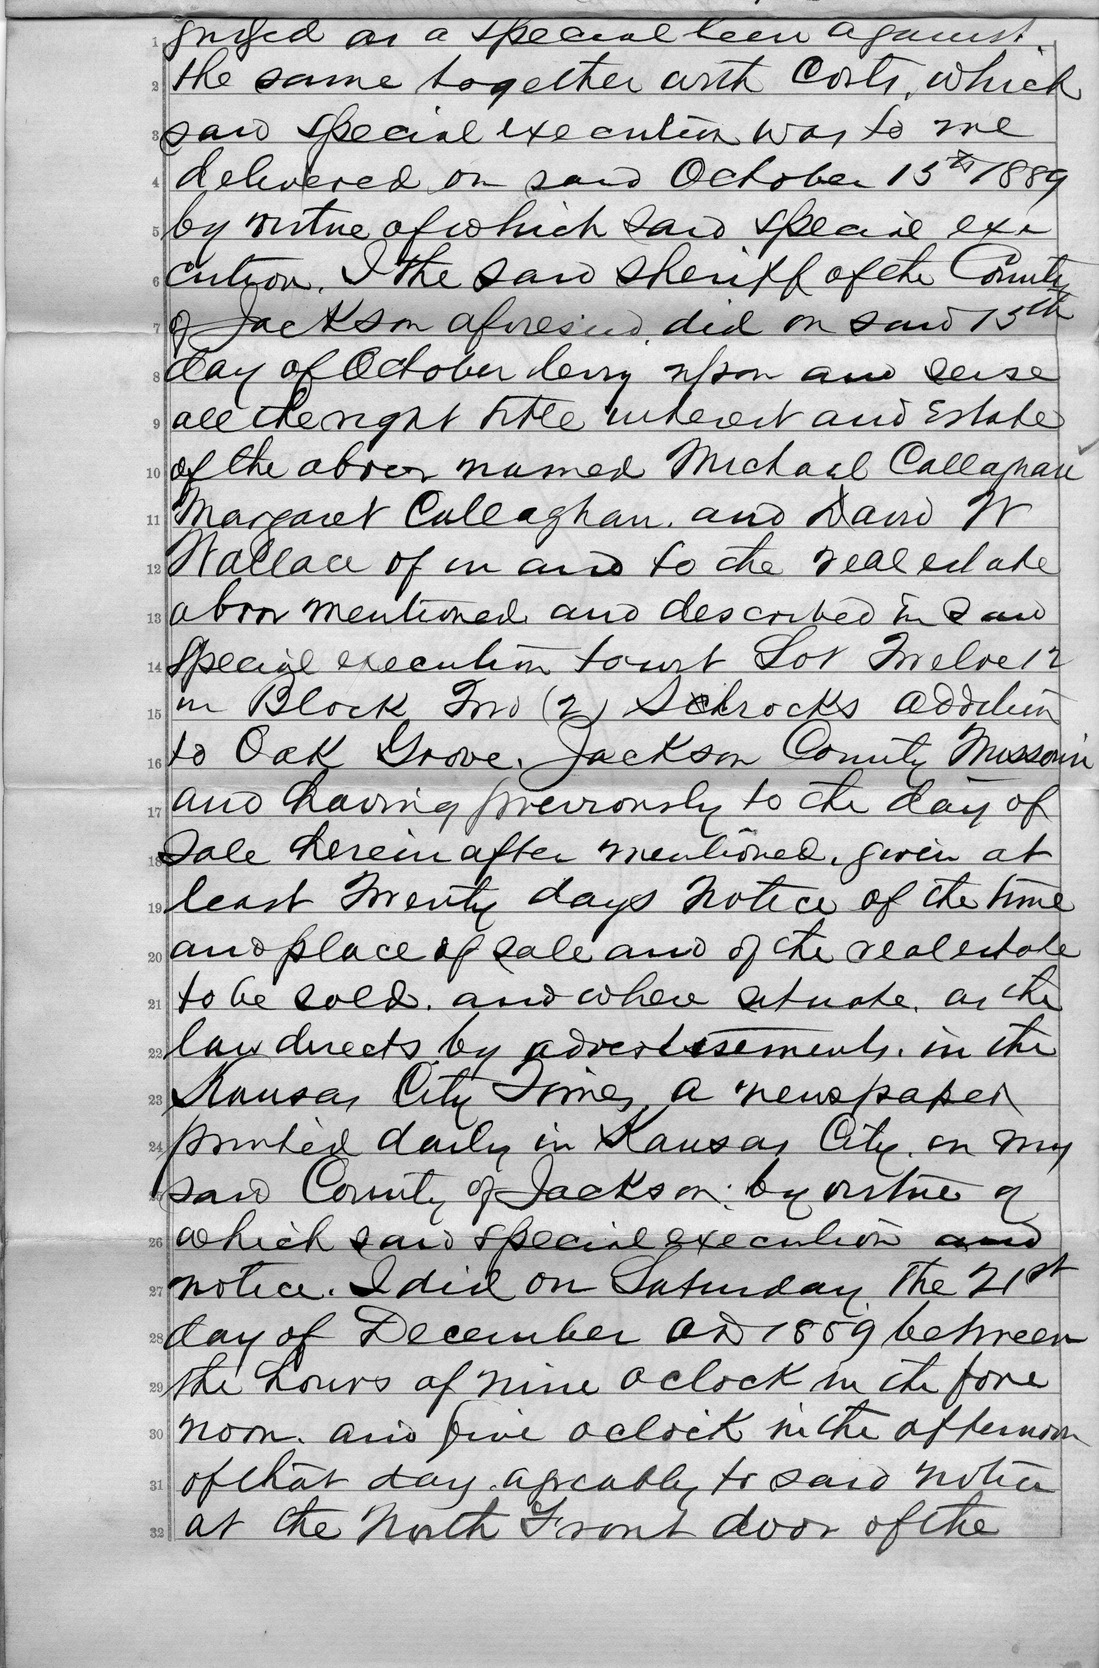 judged as a special lien against
the same together with Costs, which
said special execution was to me
delivered on said October 15th 1889
by virtue of which said special exe
cution. I the said sheriff of the County
of Jackson aforesaid, did on said 15th
day of October levy upon and seise
all the right title interest and Estate
of the above named Michael Callaghan
Margaret Callaghan. and David W
Wallace of in and to the real estate
above mentioned and described in said
special execution towit Lot Twelve 12
in Block Two (2) Schrocks addition
to Oak Grove. Jackson County Missouri
and having previously to the day of
Sale herein after mentioned, given at
least Twenty days Notice of the time
and place of sale and of the real estate
to be sold. and where situate. as the
law directs by advertisements. in the
Kansas City Times, a newspaper
printed daily in Kansas City. in my
said County of Jackson: by virtue of
which said special execution and
notice. I did on Saturday the 21st
day of December AD 1889 between
the hours of nine oclock in the fore
noon. and five oclock in the afternoon
of that day. agreably to said notice
at the North Front door of the